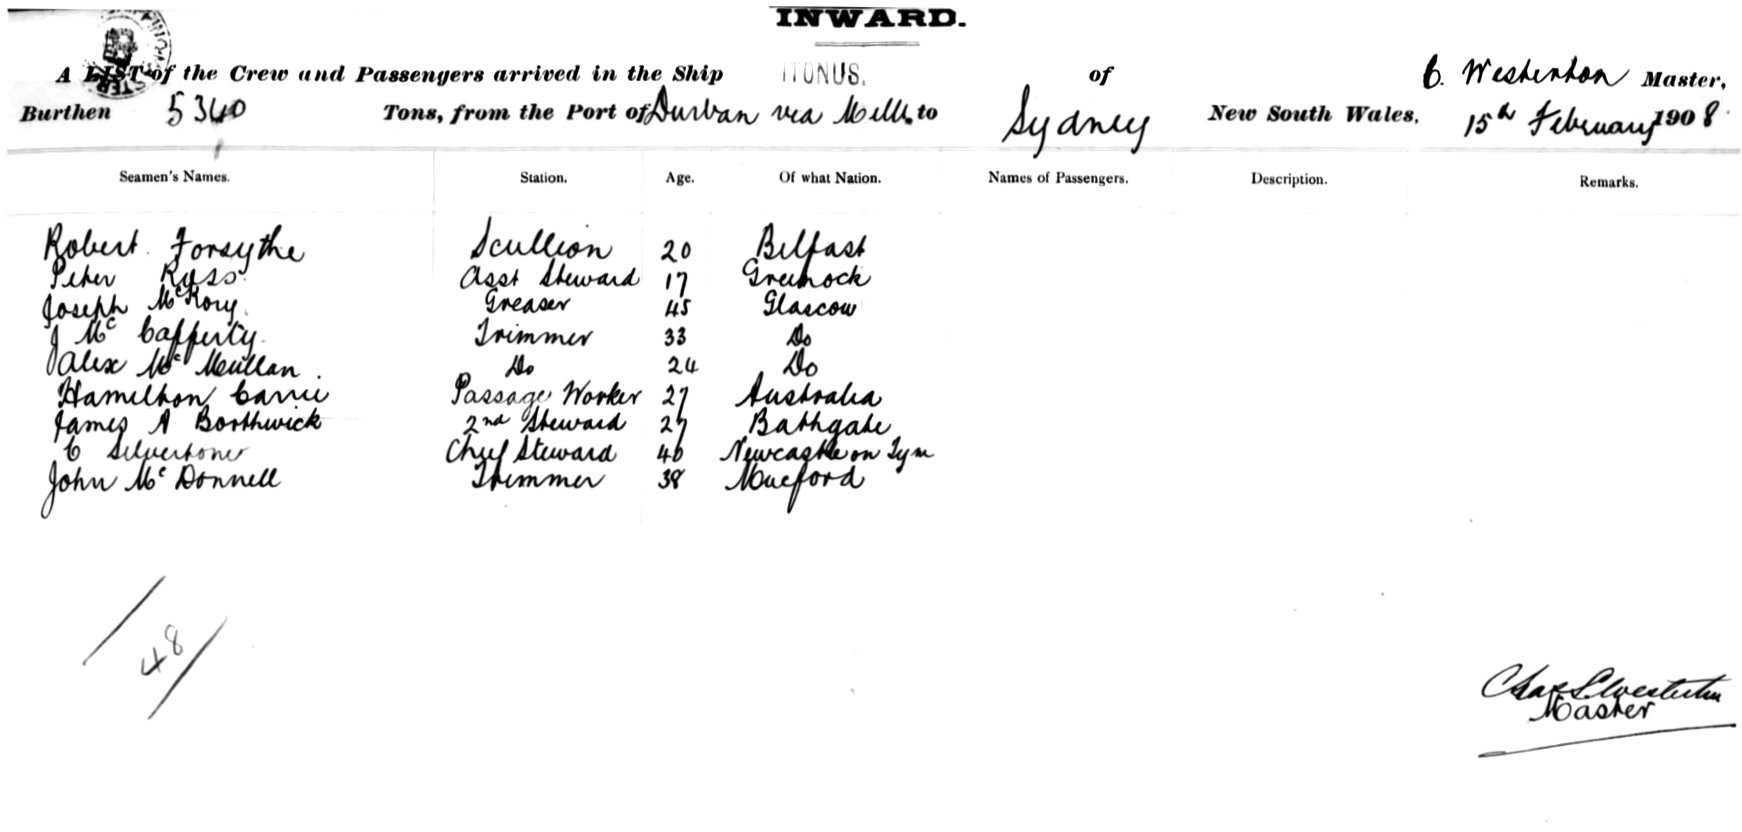 INWARD.
A LIST of the Crew and Passengers arrived in the Ship ITONUS. of C. Westerton Master,
Burthen 5340 Tons, from the Port of Durban via Melb. to Sydney New South Wales, 15th February 1908
Seamen's Names. Station. Age. Of what Nation. Names of Passengers. Description. Remarks.
Robert Forsythe Scullion 20 Belfast
Peter Ross Asst Steward 17 Greenock
Joseph McRory Greaser 45 Glascow
J McCafferty Trimmer 33 Do
Alex McMullan Do 24 Do
Hamilton Carrie Passage Worker 27 Australia
James A Borthwick 2nd Steward 27 Bathgate
C Silvertone Chief Steward 40 Newcastle on Tyne
John McDonnell Trimmer 38
48
Master